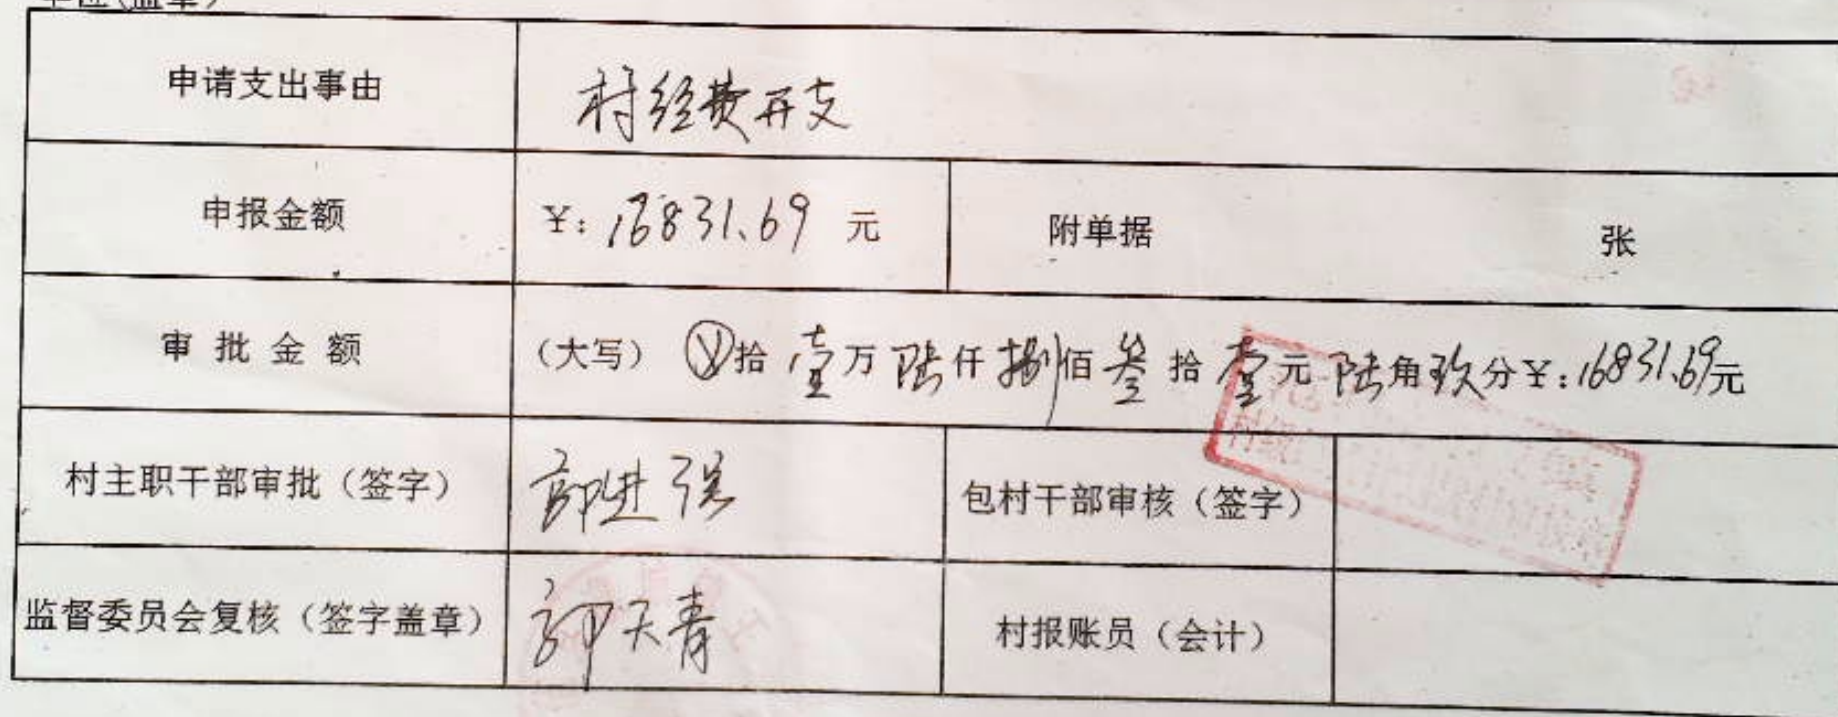 单位(盖章)
申请支出事由 村经费开支
申报金额 ¥: 16831.69 元 附单据 张
审批金额 (大写) ⊗拾壹万陆仟捌佰叁拾壹元陆角玖分¥:16831.69元
村主职干部审批(签字) 郭进强 包村干部审核(签字)
监督委员会复核(签字盖章) 郭天青 村报账员(会计)